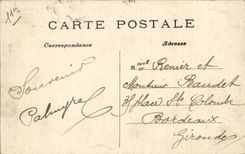 CARTE POSTALE
Correspondance
Adresse
Souvenir
Palmyre
Renier et
Monsieur Baudet
place Ste Colombe
Bordeaux
Gironde